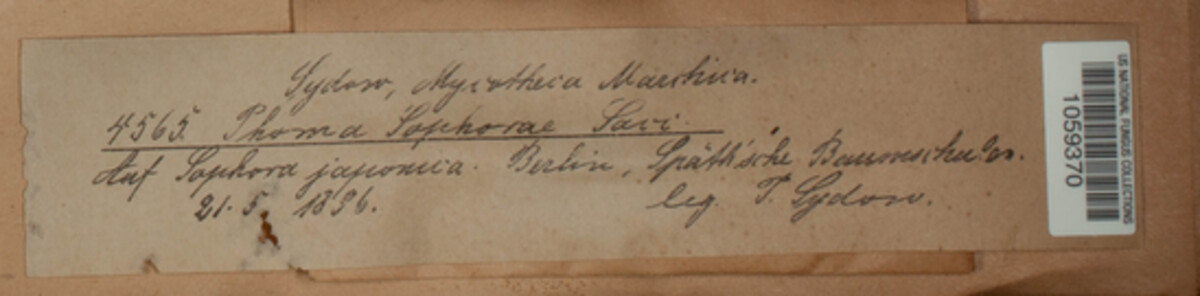 Sydow, Mycotheca Marchica.
4565. Phoma Sophorae Sacc.
Auf Sophora japonica. Berlin, Späth'sche Baumschulen.
21. 5. 1896.
leg. P. Sydow.
US NATIONAL FUNGUS COLLECTIONS
1059370